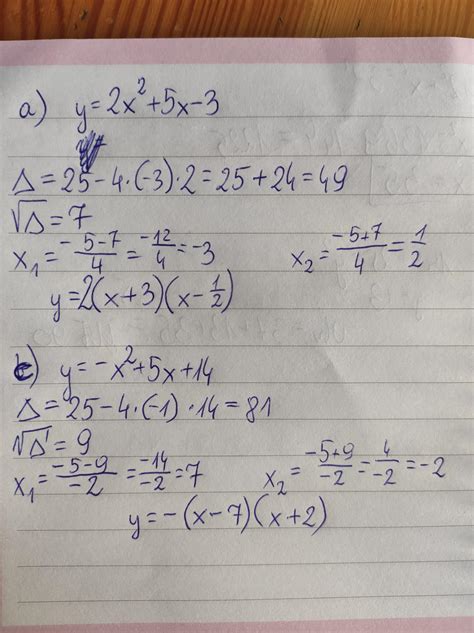 a) y=2x²+5x-3
Δ=25-4·(-3)·2=25+24=49
√Δ=7
x₁=(-5-7)/4=-12/4=-3 x₂=(-5+7)/4=1/2
y=2(x+3)(x-1/2)
c) y=-x²+5x+14
Δ=25-4·(-1)·14=81
√Δ=9
x₁=(-5-9)/-2=-14/-2=7 x₂=(-5+9)/-2=4/-2=-2
y=-(x-7)(x+2)